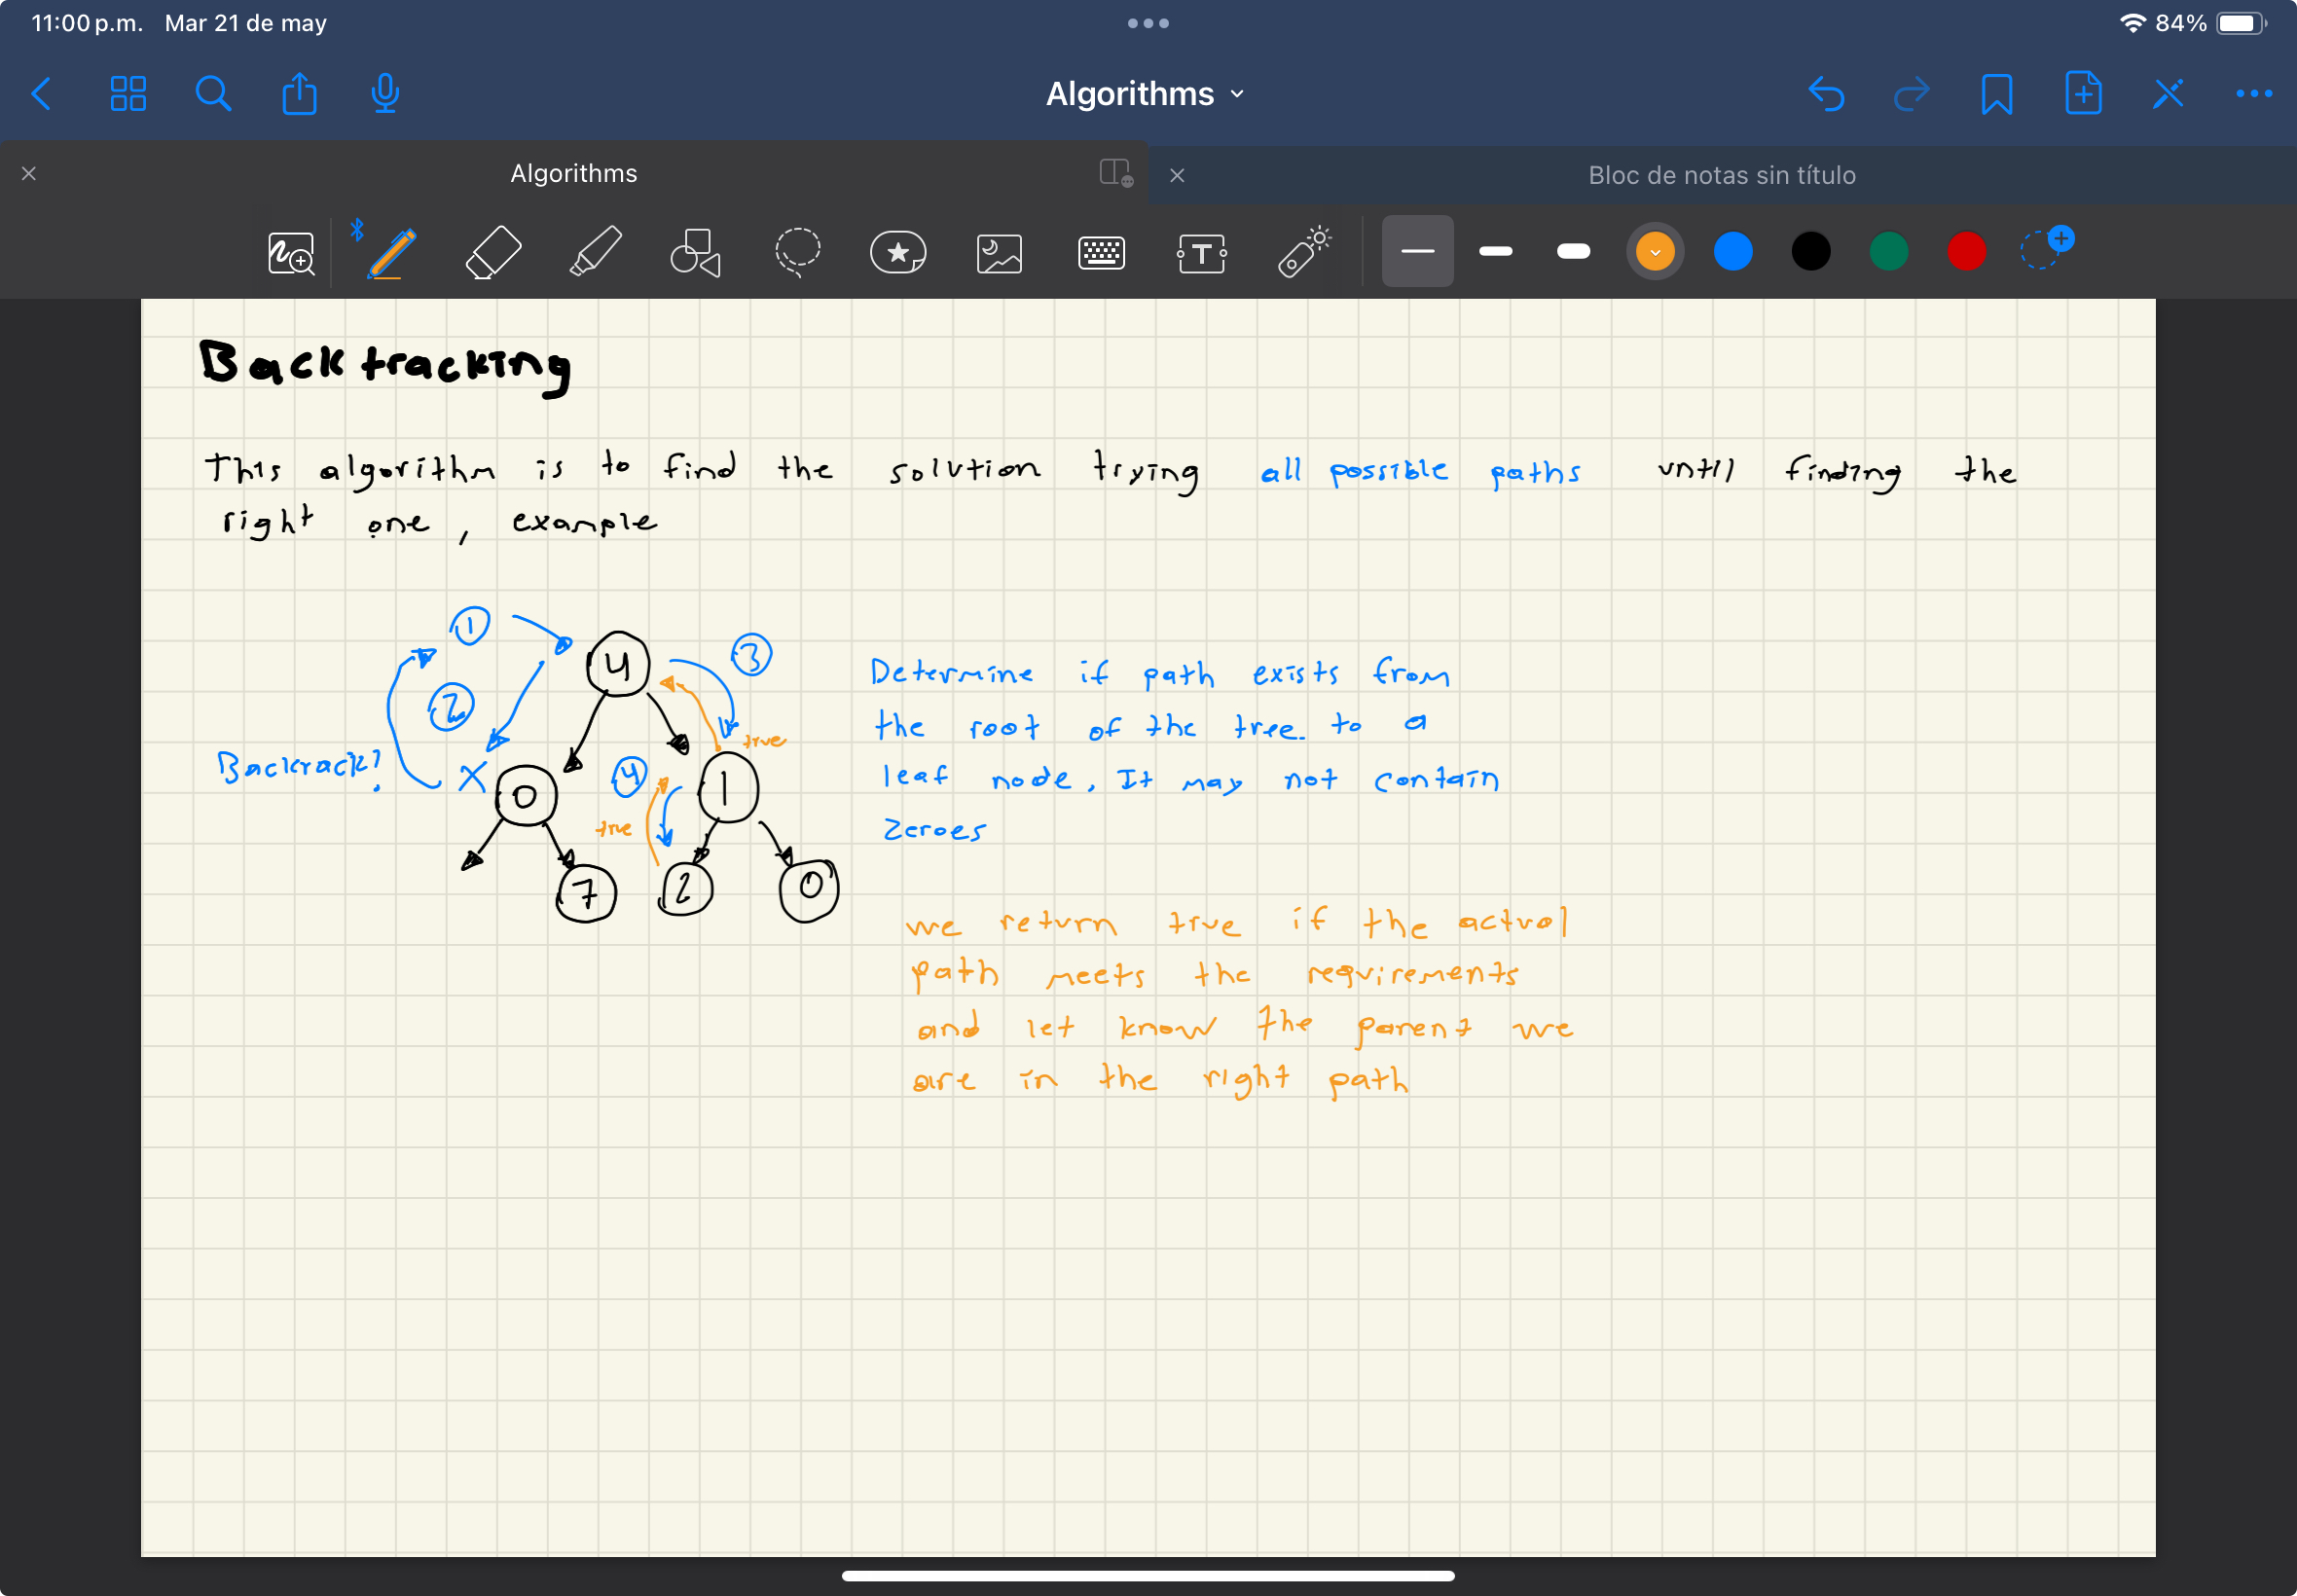 11:00 p.m. Mar 21 de may
84%
Algorithms
Algorithms
Bloc de notas sin título
T
Backtracking
This algorithm is to find the solution trying all possible paths until finding the
right one, example
1
4
3
2
true
Backrack!
X
0
4
1
true
7
2
0
Determine if path exists from
the root of the tree to a
leaf node. It may not contain
zeroes
we return true if the actual
path meets the requirements
and let know the parent we
are in the right path